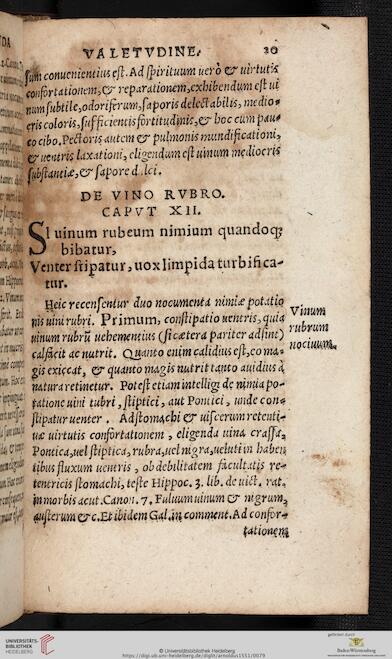 VALETVDINE. 20
sum conuenientius est. Ad spirituum uerò & uirtutis
confortationem, & reparationem, exhibendum est ui
num subtile, odoriferum, saporis delectabilis, medio=
cris coloris, sufficientis fortitudinis, & hoc cum pau=
co cibo. Pectoris autem & pulmonis mundificationi,
& uentris laxationi, eligendum est uinum mediocris
substantiæ, & sapore dulci.
DE VINO RVBRO.
CAPVT XII.
SI uinum rubeum nimium quandoq;
bibatur,
Venter stipatur, uox limpida turbifica-
tur.
Heic recensentur duo nocumenta nimiæ potatio
nis uini rubri. Primum, constipatio uentris, quia
uinum rubrũ uehementius (si cætera pariter adsint)
calfacit ac nutrit. Quanto enim calidius est, co ma=
gis exiccat, & quanto magis nutrit tanto auidius à
natura retinetur. Potest etiam intelligi de nimia po=
tatione uini rubri, stiptici, aut Pontici, unde con=
stipatur uenter. Ad stomachi & uiscerum retenti=
uæ uirtutis confortationem, eligenda uina crassa,
Pontica, uel stiptica, rubra, uel nigra, ueluti in haben
tibus fluxum uentris, ob debilitatem facultatis re=
tentricis stomachi, teste Hippoc. 3. lib. de uict. rat.
in morbis acut. Canon. 7. Fuluum uinum & nigrum,
austerum &c. Et ibidem Gal. in comment. Ad confor=
tationem
Vinum
rubrum
nociuum.
UNIVERSITÄTS-
BIBLIOTHEK
HEIDELBERG
© Universitätsbibliothek Heidelberg
https://digi.ub.uni-heidelberg.de/diglit/arnoldus1551/0079
gefördert durch
Baden-Württemberg